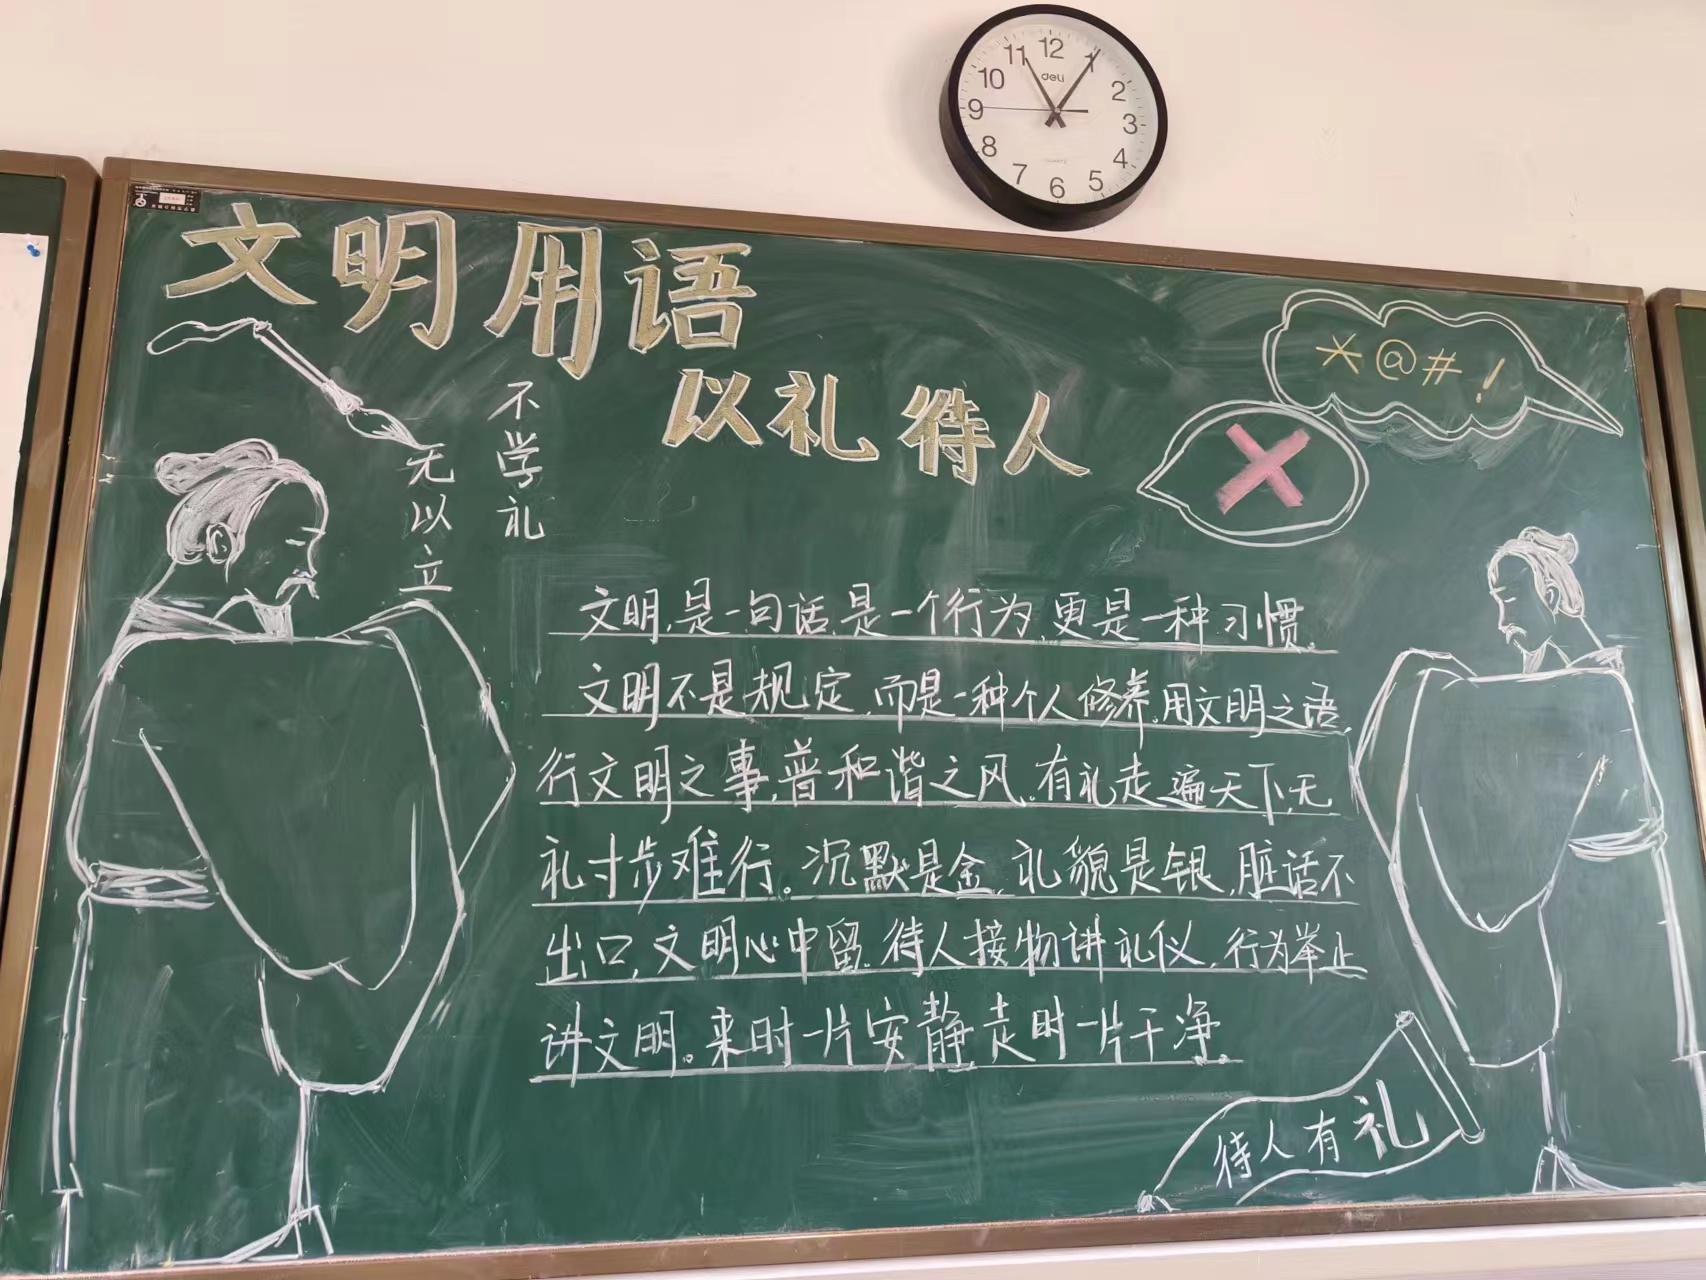 12
11
1
10
deli
2
9
3
8
4
QUARTZ
7
6
5
文明用语
以礼待人
*@#!
不学礼
无以立
文明,是一句话,是一个行为,更是一种习惯。
文明不是规定,而是一种个人修养。用文明之语,
行文明之事,普和谐之风。有礼走遍天下,无
礼寸步难行。沉默是金,礼貌是银,脏话不
出口,文明心中留。待人接物讲礼仪,行为举止
讲文明。来时一片安静,走时一片干净。
待人有礼